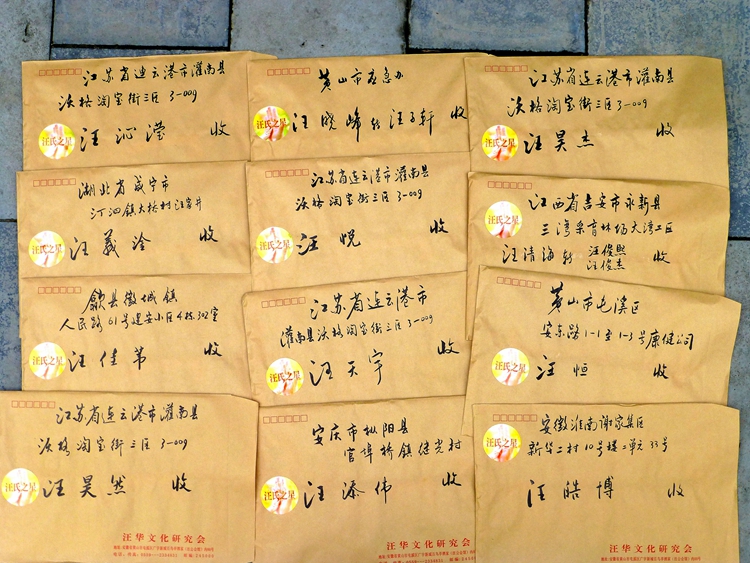 江苏省连云港市灌南县
沃格淘宝街三区 3-009
汪氏之星
汪沁滢 收
黄山市应急办
汪氏之星
汪晓峰转汪子轩 收
江苏省连云港市灌南县
沃格淘宝街三区 3-009
汪氏之星
汪昊杰 收
湖北省咸宁市
汀泗镇大桥村汪家井
汪氏之星
汪义泠 收
江苏省连云港市灌南县
沃格淘宝街三区 3-009
汪氏之星
汪悦 收
江西省吉安市永新县
三湾采育林场大湾工区
汪氏之星
汪清海转 汪俊熙
汪俊杰 收
歙县徽城镇
人民路61号建安小区4栋302室
汪氏之星
汪佳芾 收
江苏省连云港市
灌南县沃格淘宝街三区 3-009
汪氏之星
汪天宇 收
黄山市屯溪区
安东路1-1至1-3号康健公司
汪氏之星
汪恒 收
江苏省连云港市灌南县
沃格淘宝街三区 3-009
汪氏之星
汪昊然 收
汪华文化研究会
安庆市枞阳县
官埠桥镇继光村
汪氏之星
汪添伟 收
汪华文化研究会
安徽淮南谢家集区
新华二村10号楼2单元33号
汪氏之星
汪皓博 收
汪华文化研究会